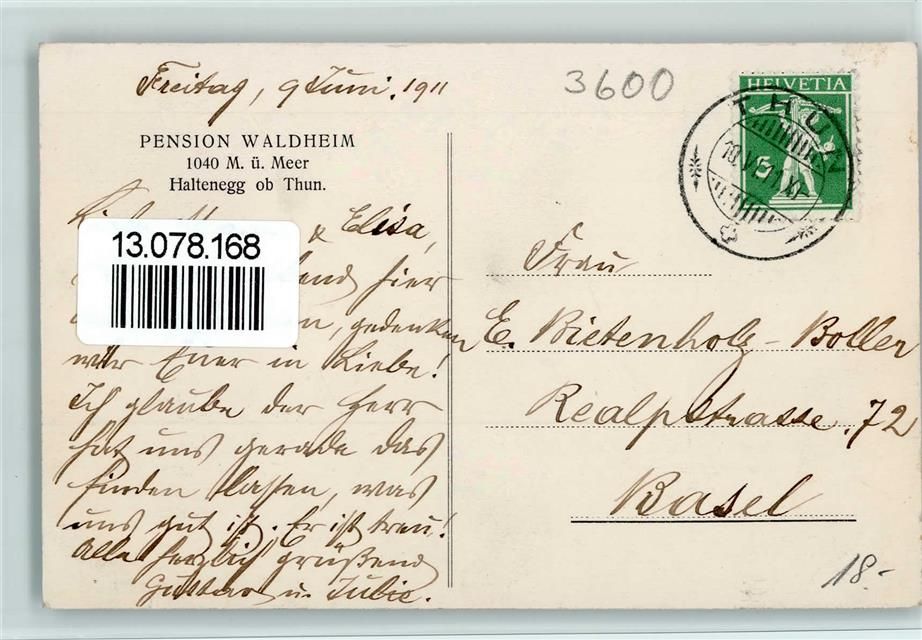 Freitag, 9 Juni. 1911
3600
PENSION WALDHEIM
1040 M. ü. Meer
Haltenegg ob Thun.
HELVETIA
5
THUN
10.VI.11.XI
& Elisa,
13.078.168
hier
gedenken
wir Euer in Liebe!
Ich glaube der Herr
hat uns gerade das
finden lassen, was
uns gut ist. Er ist treu!
Alle herzlich grüßend
Gustav u. Julie.
Frau
E. Bietenholz-Boller
Realpstrasse. 72
Basel
18.-